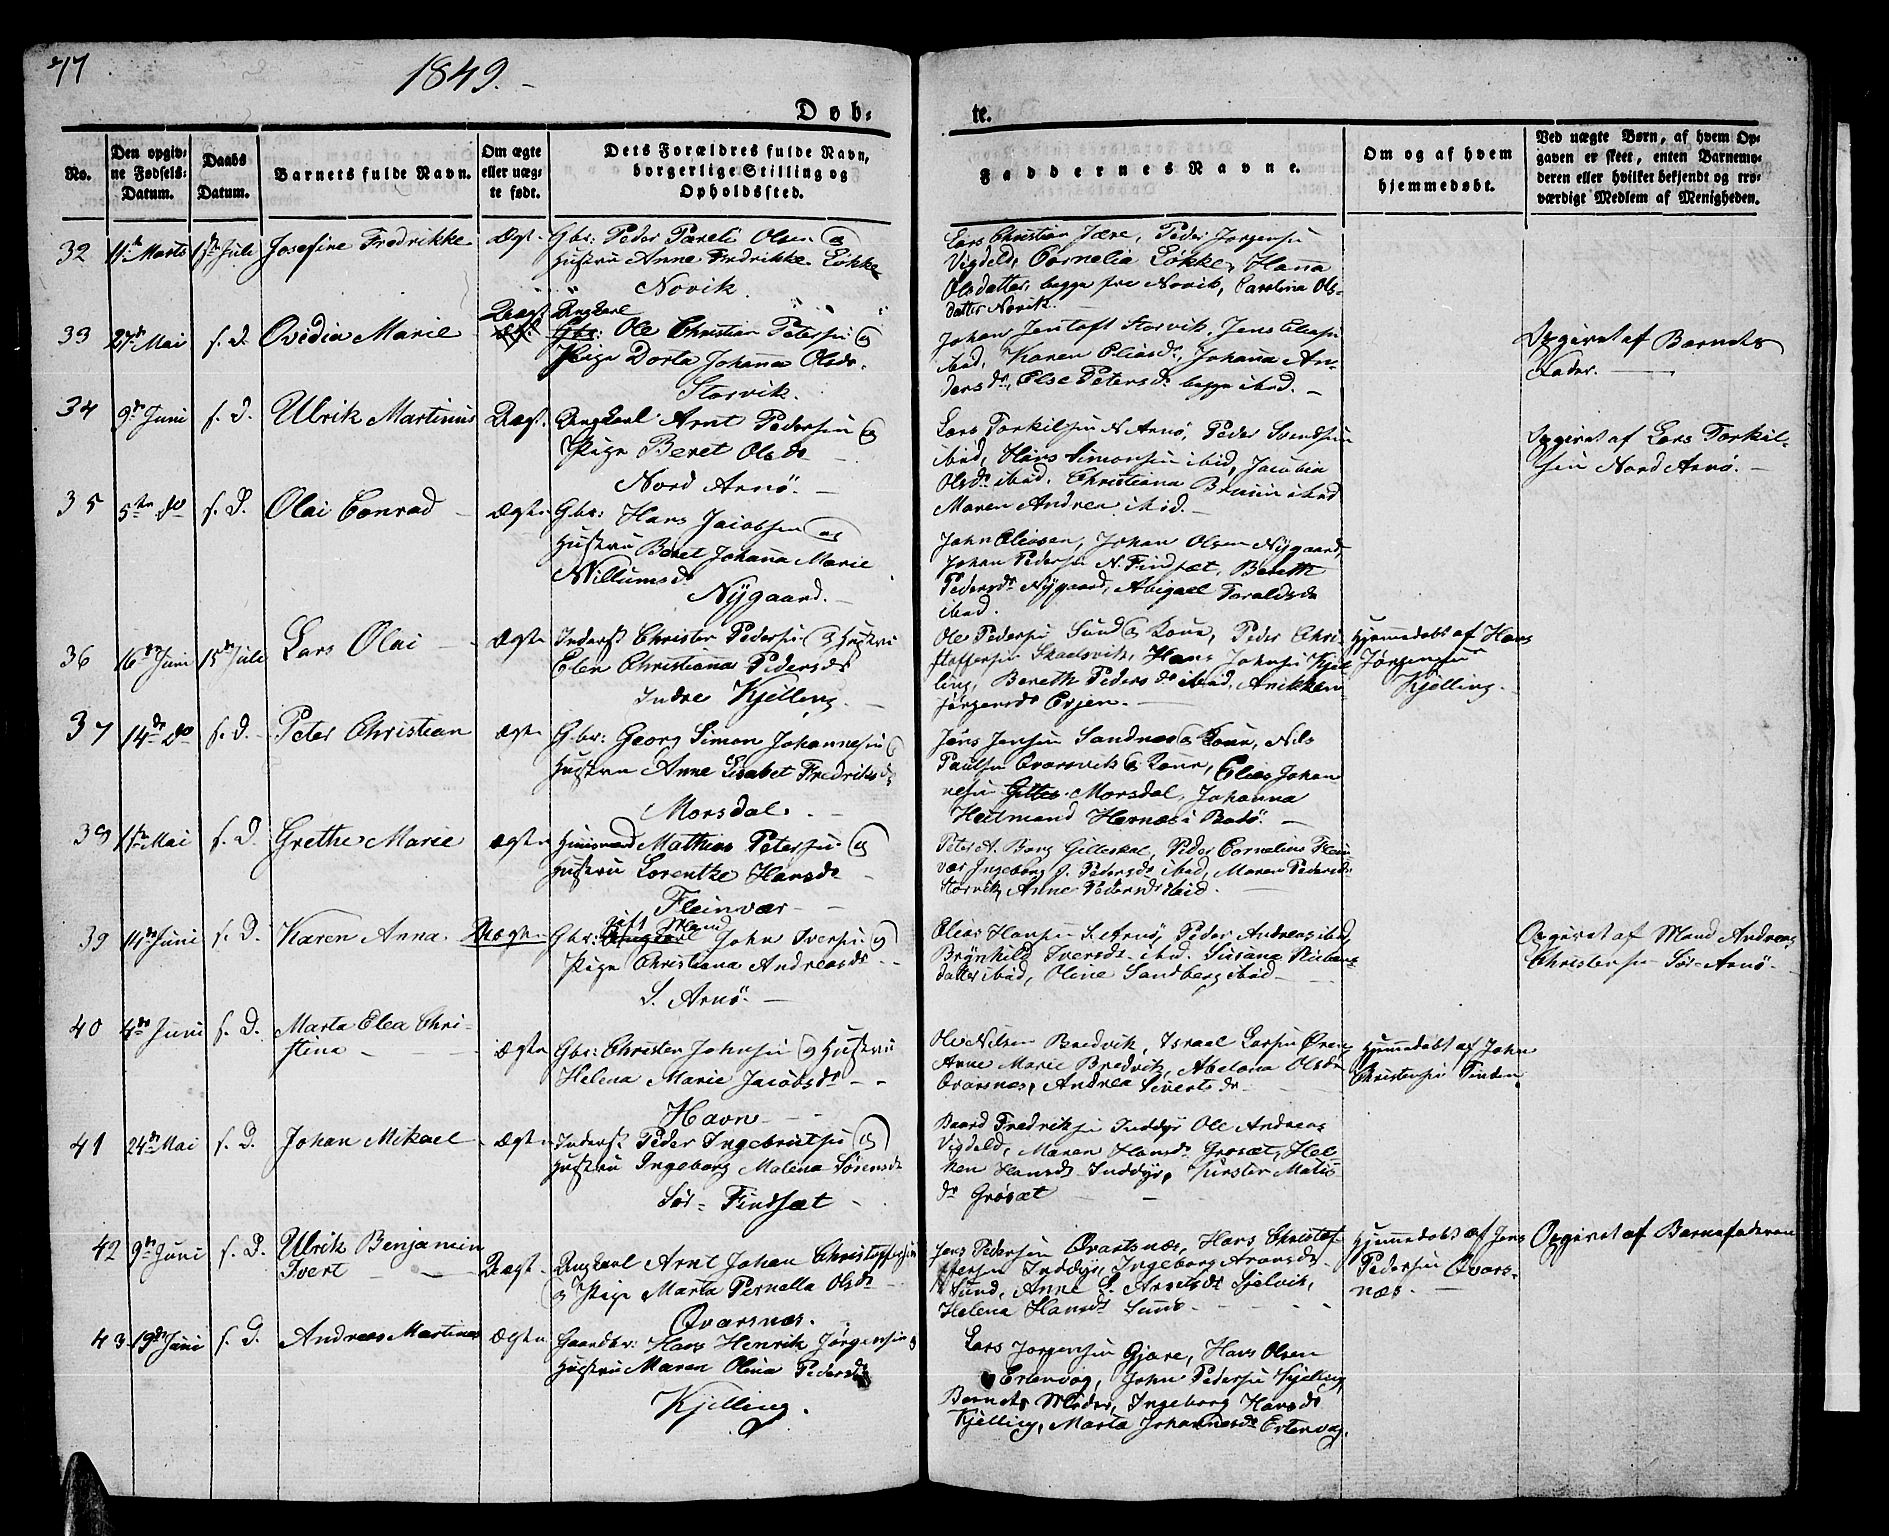 77
1849.
Døb-
te.
No.
Den opgiv-
ne Fødsels-
Datum.
Daabs
Datum.
Barnets fulde Navn.
Om ægte
eller uæg-
te født.
Dets Forældres fulde Navn,
borgerlige Stilling og
Opholdssted.
Faddernes Navne.
Om og af hvem
hjemmedøbt.
Ved uægte Børn, af hvem Op-
gaven er skeet, enten Barnemo-
deren eller hvilket bekjendt og tro-
værdigt Medlem af Menigheden.
32
11te Marts
1ste Juli
Josefine Fredrikke
Ægte
Gbr: Peder Pareli Olsen og
Hustru Anne Fredrikke Løkke
Novik.
Lars Christian Jære, Peder Jørgensen
Vigdeld, Cornelia Løkke, Hanna
Olsdatter begge fra Novik, Carolina Ols-
datter Novik.
33
27de Mai
s. D.
Ovedia Marie
Uægt
Ægt
Ungkarl
Gbr: Ole Christian Petersen og
Pige Dorta Johanna Olsdr
Storvik.
Johan Jentoft Storvik, Jens Eliasen
ibid, Karen Eliasdr, Johanna An-
dersdr, Else Petersdr begge ibid.
Opgivet af Barnets
Fader.
34
9de Juni
s. D.
Ulrik Martinus
Uægt.
Ungkarl Arnt Pedersen og
Pige Beret Olsdr
Nord Arnö.
Lars Torkilsen N. Arnö, Peder Svendsen
ibid, Hans Simonsen ibid, Jacobia
Olsdr ibid, Christiana Bruun ibid
Maren Andrea ibid.
Opgivet af Lars Torkil-
sen Nord Arnö.
35
5te do
s. D.
Olai Conrad
Ægte
Gbr: Hans Jacobsen og
Hustru Beret Johanna Marie
Willumsdr
Nÿgaard.
John Eliasen, Johan Olsen Nÿgaard,
Johan Pedersen N. Findsæt, Bereth
Pedersdr Nÿgaard, Abigael Taraldsdr
ibid.
36
16de Juni
15de Juli
Lars Olai
Ægte
Inderst Christen Pedersen og Hustru
Elen Christianna Pedersdr
Indre Kjelling.
Ole Pedersen Sund og Kone, Peder Chri-
stoffersen Skaalsvik, Hans Johnsen Kjel-
ling, Bereth Pedersdr ibid, Anikken
Jørgensdr Evjen.
Hjemmedøbt af Hans
Jørgensen
Kjelling.
37
14de do
s. D.
Peter Christian
Ægte
Gbr: Georg Simon Johannesen og
Hustru Anne Lisabet Fredriksdr
Morsdal.
Jens Jensen Sandnæs og Kone, Nils
Paulsen Qvarsvik og Kone, Elias Johan-
nesen Morsdal, Johanna
Heitmand Hernæs i Bodö.
39
1ste Mai
s. D.
Grethe Marie
Ægte
Huusmand Mathias Petersen og
Hustru Lorentze Hansdr
Fleinvær
Peter A. Bang Gilleskal, Peder Cornelius Flein-
vær Ingeborg J. Pedersdr ibid, Maren Pedersdr
Storvik, Anne Pedersdr ibid.
39
14de Juni
s. D.
Karen Anna.
Uægte
gift Mand
Gbr: Ungkarl John Iversen og
Pige Christiana Andreasdr
S. Arnö.
Elias Hansen S. Arnö, Peder Andreas ibid,
Brÿnhild Iversdr ibid. Susana
datter ibid, Oline Sandberg ibid
Opgivet af Mand Andreas
Christensen Sör-Arnö.
40
4de Juni
s. D.
Marta Elea Chri-
stina
Ægte
Gbr: Christen Johnsen og Hustru
Helena Marie Jacobsdr
Havn
Ole Nilsen Bredvik, Israel Larsen Ören,
Anne Marie Bredvik, Abelona Olsdr
Qvarsnæs, Andrea Sivertsdr
Hjemmedøbt af John
Christensen Tinden
41
24de Mai
s. D.
Johan Mikael
Ægte
Inderst Peder Ingebrietsen og
Hustru Ingeborg Malena Sörensdr
Sör-Findsæt
Baard Fredriksen Inddÿr Ole Andreas
Vigdeld, Maren Hansdr Grosæt, Hel-
Hansdr Inddÿr, Kirsten Matis
dr Grosæt
42
9de Juni
s. D.
Ulrik Benjamin
Ivert
Uægt
Ungkarl Arnt Johan Christoffersen
og Pige Marta Pernella Olsdr
Qvarsnæs.
Jens Pedersen Qvartsnæs, Hans Christof-
fersen Inddÿr, Ingeborg Aronsdr
Sund, Anne L. Arntsdr Sjelvik,
Helena Hansdr Sund
Hjemmedøbt af Jens
Pedersen Qvars-
næs.
Opgivet af Barnefaderen
43
19de Juni
s. D.
Andreas Martines
Ægte
Gaardbr: Hans Henrik Jørgensen og
Hustru Maren Olina Pedersdr
Kjelling.
Lars Jørgensen Gjære, Hans Olsen
Ertenvog, John Pedersen Kjelling,
Barnets Moder, Ingeborg Hansdr
Kjelling, Marta Johannesdr Ertenvog.